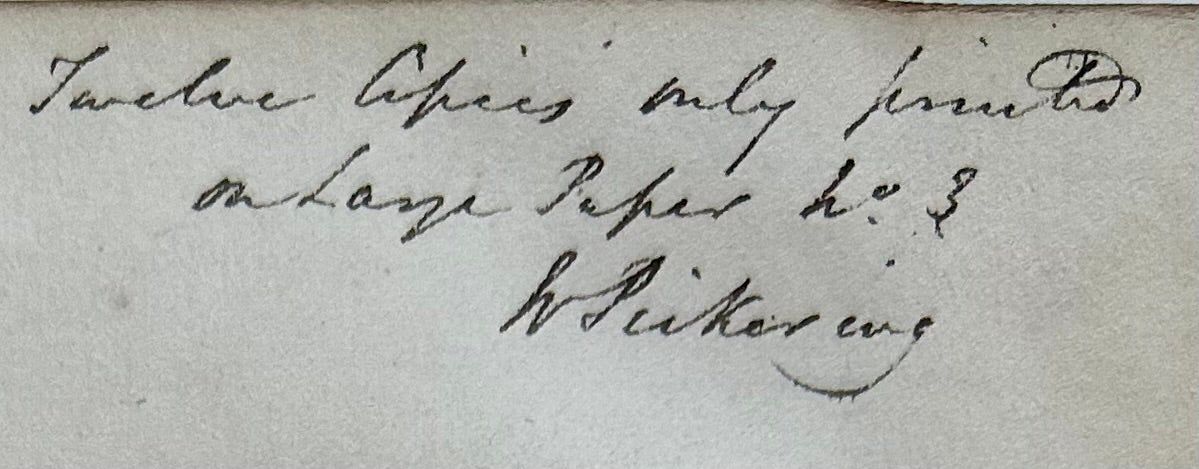 Twelve Copies only printed
on Large Paper No. 3
W Pickering